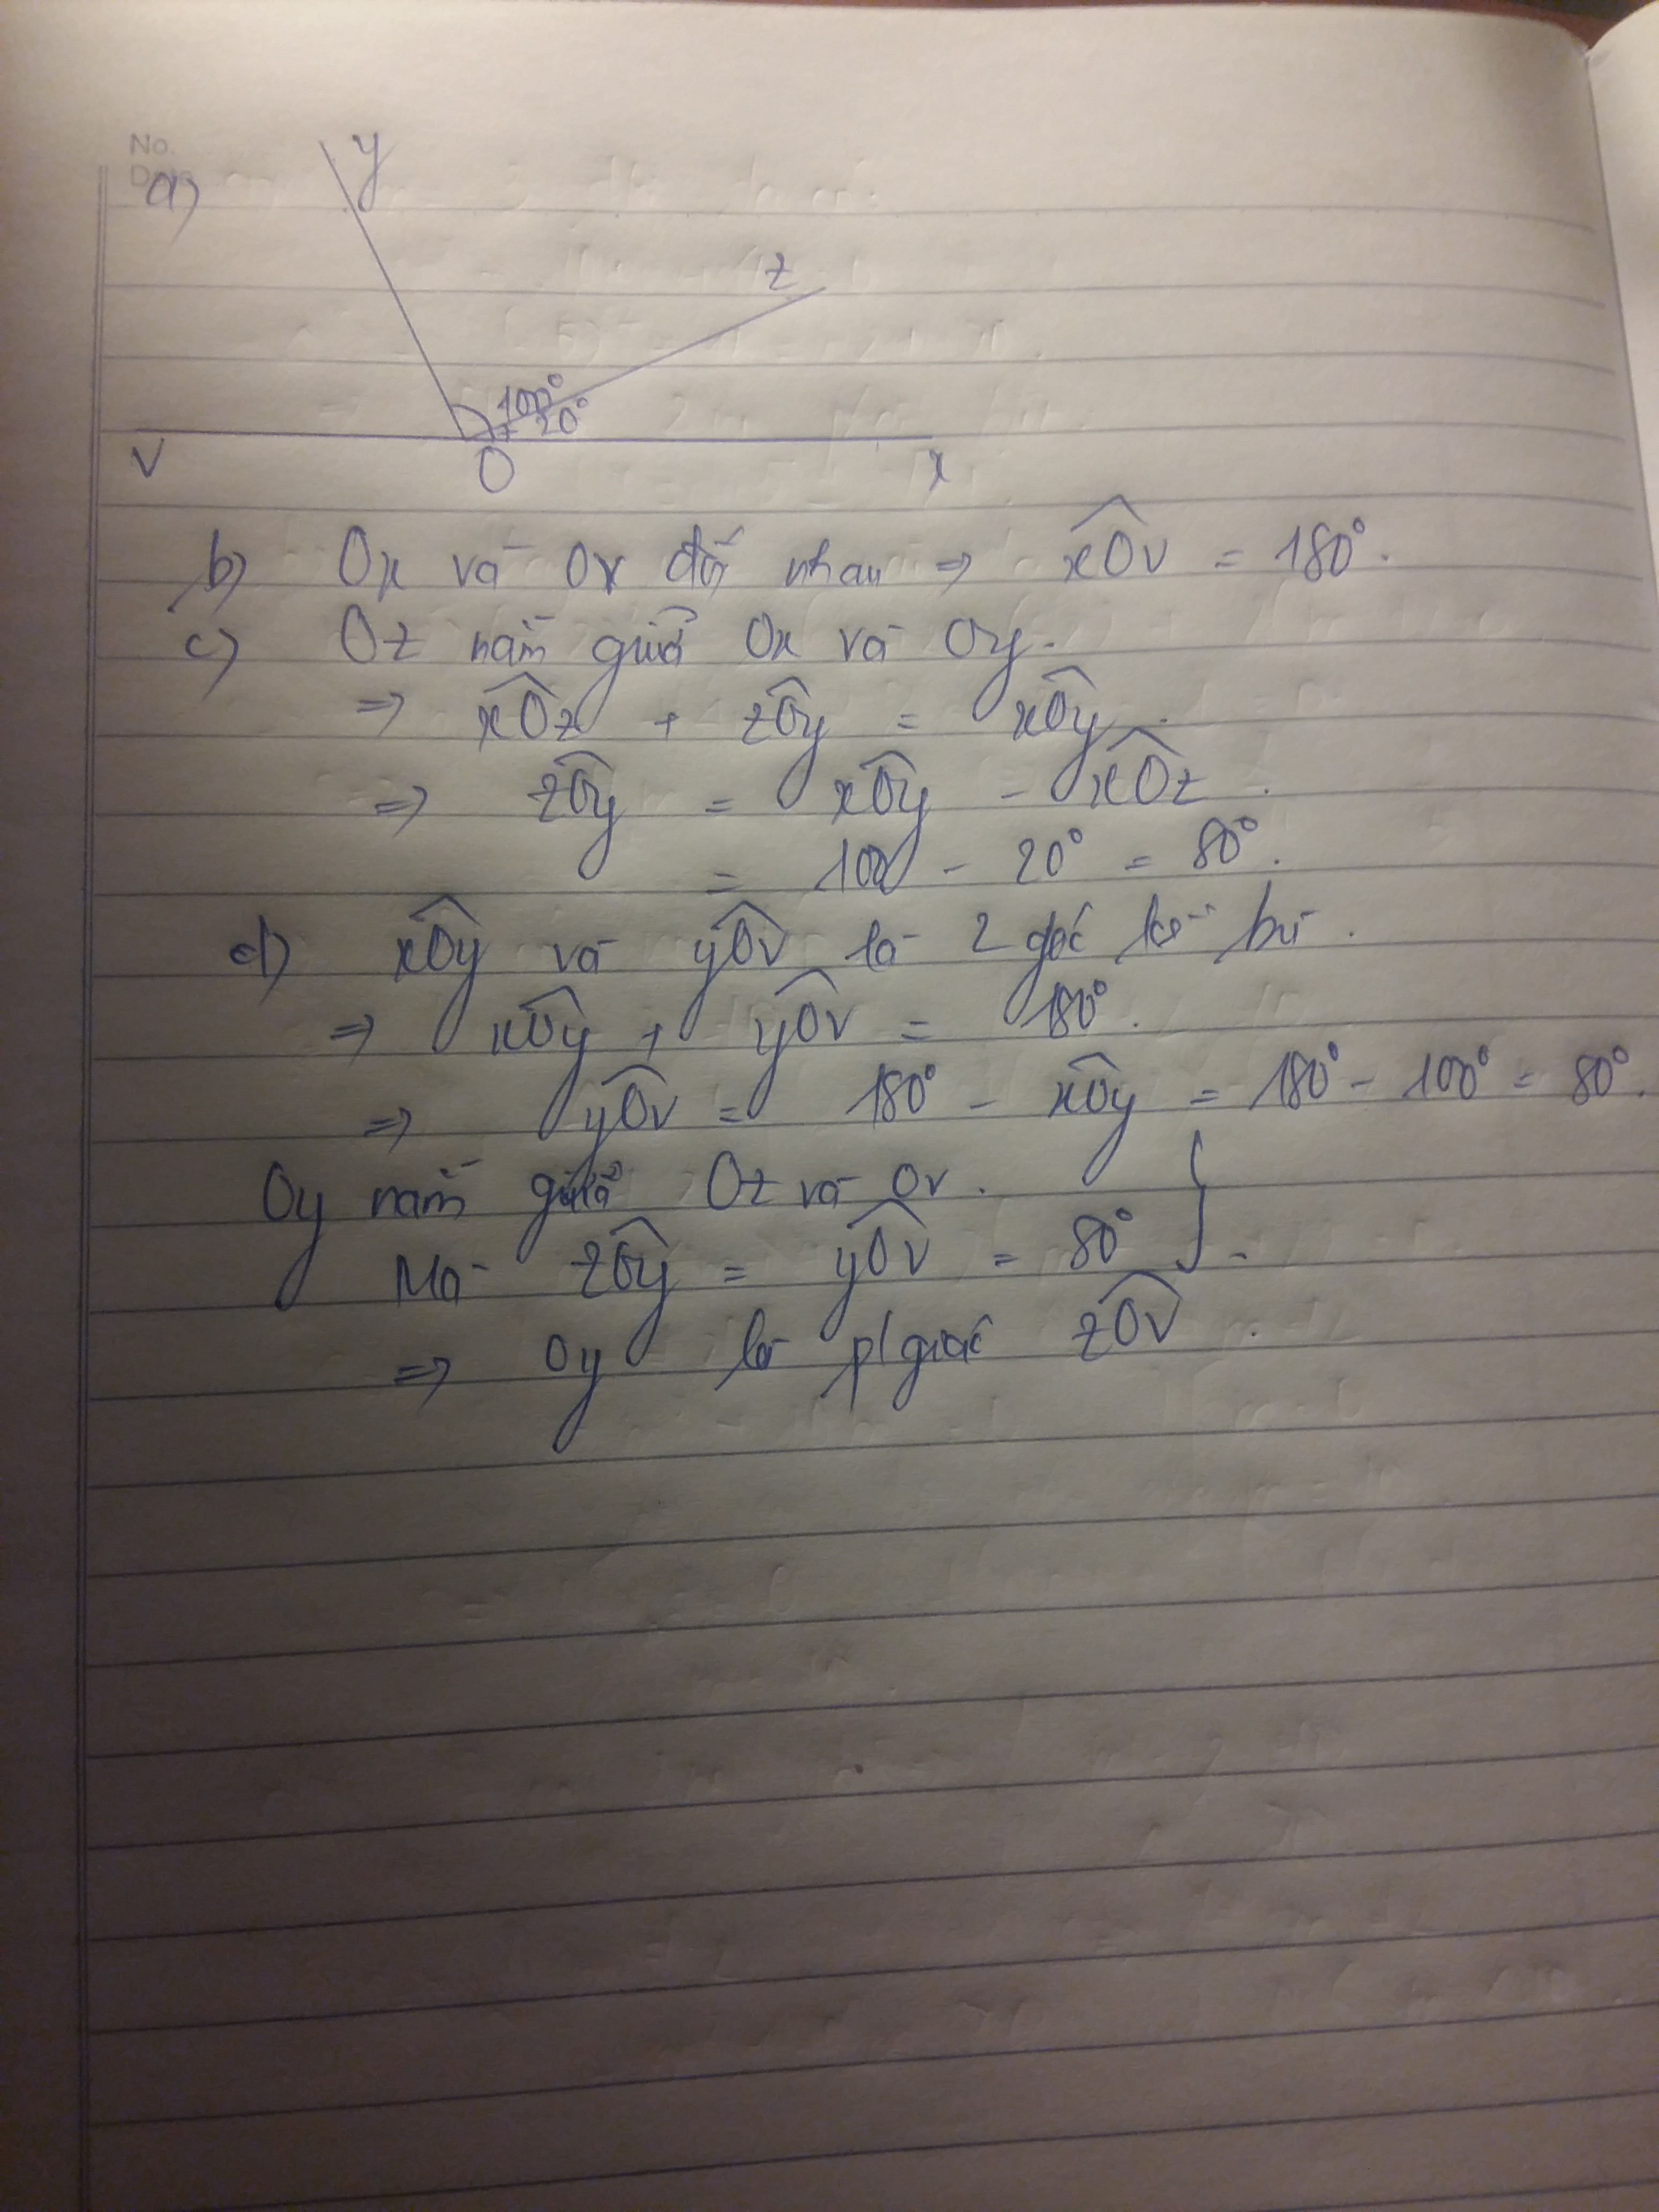 No.
Date
a)
y
z
100°
20°
v
O
x
b) Ox và Ov đối nhau => xÔv = 180°.
c) Oz nằm giữa Ox và Oy.
=> xÔz + zÔy = xÔy.
=> zÔy = xÔy - xÔz.
= 100 - 20° = 80°.
d) xÔy và yÔv là 2 góc kề bù.
=> xÔy + yÔv = 180°.
=> yÔv = 180° - xÔy = 180° - 100° = 80°.
Oy nằm giữa Oz và Ov.
Mà zÔy = yÔv = 80°
=> Oy là p/giác zÔv.